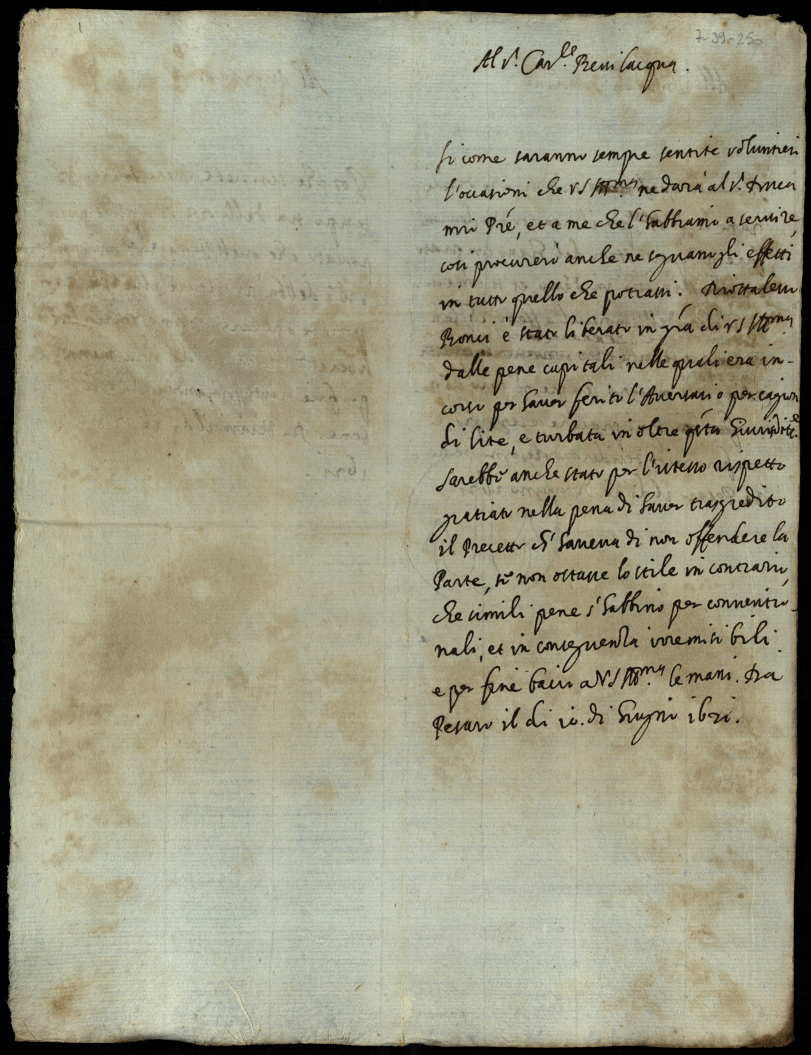 7-39-250
Al S.r Car.le Bevilacqua.
Si come saranno sempre sentite voluntieri
l'occasioni che VS Ill.ma ne darà al S.r Duca
mio Pré, et a me che l'habbiamo a servire,
così procurerò anche ne seguano gli effetti
in tutto quello che potrassi.
Ronci è stato liberato in gra di VS Ill.ma
dalle pene capitali nelle quali era in-
corso per haver ferito l'Aversario per cagion
di lite, e turbata in oltre
sarebbe anche stato per l'istesso rispetto
gratiato nella pena di haver trasgredito
il Precetto ch'haveva di non offendere la
Parte, se non ostasse lo stile in contrario,
che simili pene s'habbino per conventio-
nali, et in conseguenza irremisibili.
e per fine bacio a VS Ill.ma le mani. Da
Pesaro il di 10. di Giugno 1621.